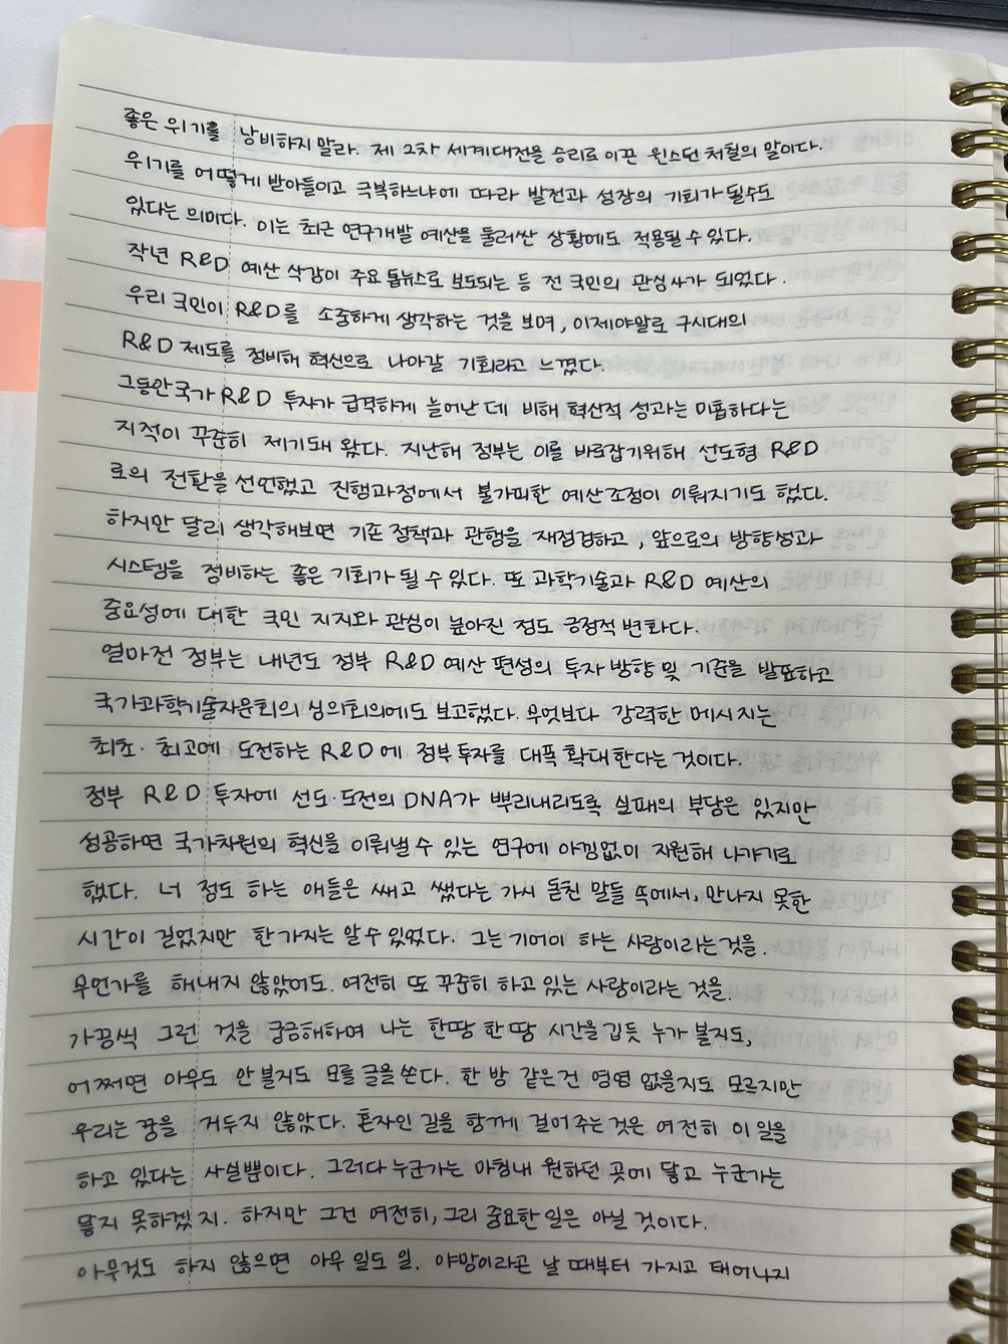 좋은 위기를 낭비하지 말라. 제 2차 세계대전을 승리로 이끈 윈스턴 처칠의 말이다.
위기를 어떻게 받아들이고 극복하느냐에 따라 발전과 성장의 기회가 될수도
있다는 의미다. 이는 최근 연구개발 예산을 둘러싼 상황에도 적용될 수 있다.
작년 R&D 예산 삭감이 주요 톱뉴스로 보도되는 등 전 국민의 관심사가 되었다.
우리 국민이 R&D를 소중하게 생각하는 것을 보며, 이제야말로 구시대의
R&D 제도를 정비해 혁신으로 나아갈 기회라고 느꼈다.
그동안 국가 R&D 투자가 급격하게 늘어난 데 비해 혁신적 성과는 미흡하다는
지적이 꾸준히 제기돼 왔다. 지난해 정부는 이를 바로잡기위해 선도형 R&D
로의 전환을 선언했고 진행과정에서 불가피한 예산조정이 이뤄지기도 했다.
하지만 달리 생각해보면 기존 정책과 관행을 재점검하고, 앞으로의 방향성과
시스템을 정비하는 좋은 기회가 될 수 있다. 또 과학기술과 R&D 예산의
중요성에 대한 국민 지지와 관심이 높아진 점도 긍정적 변화다.
얼마전 정부는 내년도 정부 R&D 예산 편성의 투자 방향 및 기준을 발표하고
국가과학기술자문회의 심의회의에도 보고했다. 무엇보다 강력한 메시지는
최초·최고에 도전하는 R&D에 정부투자를 대폭 확대한다는 것이다.
정부 R&D 투자에 선도·도전의 DNA가 뿌리내리도록 실패의 부담은 있지만
성공하면 국가차원의 혁신을 이뤄낼 수 있는 연구에 아낌없이 지원해 나가기로
했다. 너 정도 하는 애들은 쌔고 쌨다는 가시 돋친 말들 속에서, 만나지 못한
시간이 길었지만 한 가지는 알수 있었다. 그는 기어이 하는 사람이라는것을.
무언가를 해내지 않았어도. 여전히 또 꾸준히 하고 있는 사람이라는 것을.
가끔씩 그런 것을 궁금해하며 나는 한땀 한 땀 시간을 깁듯 누가 볼지도,
어쩌면 아무도 안 볼지도 모를 글을 쓴다. 한 방 같은건 영영 없을지도 모르지만
우리는 꿈을 거두지 않았다. 혼자인 길을 함께 걸어 주는것은 여전히 이 일을
하고 있다는 사실뿐이다. 그러다 누군가는 마침내 원하던 곳에 닿고 누군가는
닿지 못하겠지. 하지만 그건 여전히, 그리 중요한 일은 아닐 것이다.
아무것도 하지 않으면 아무 일도 일. 야망이라곤 날 때부터 가지고 태어나지